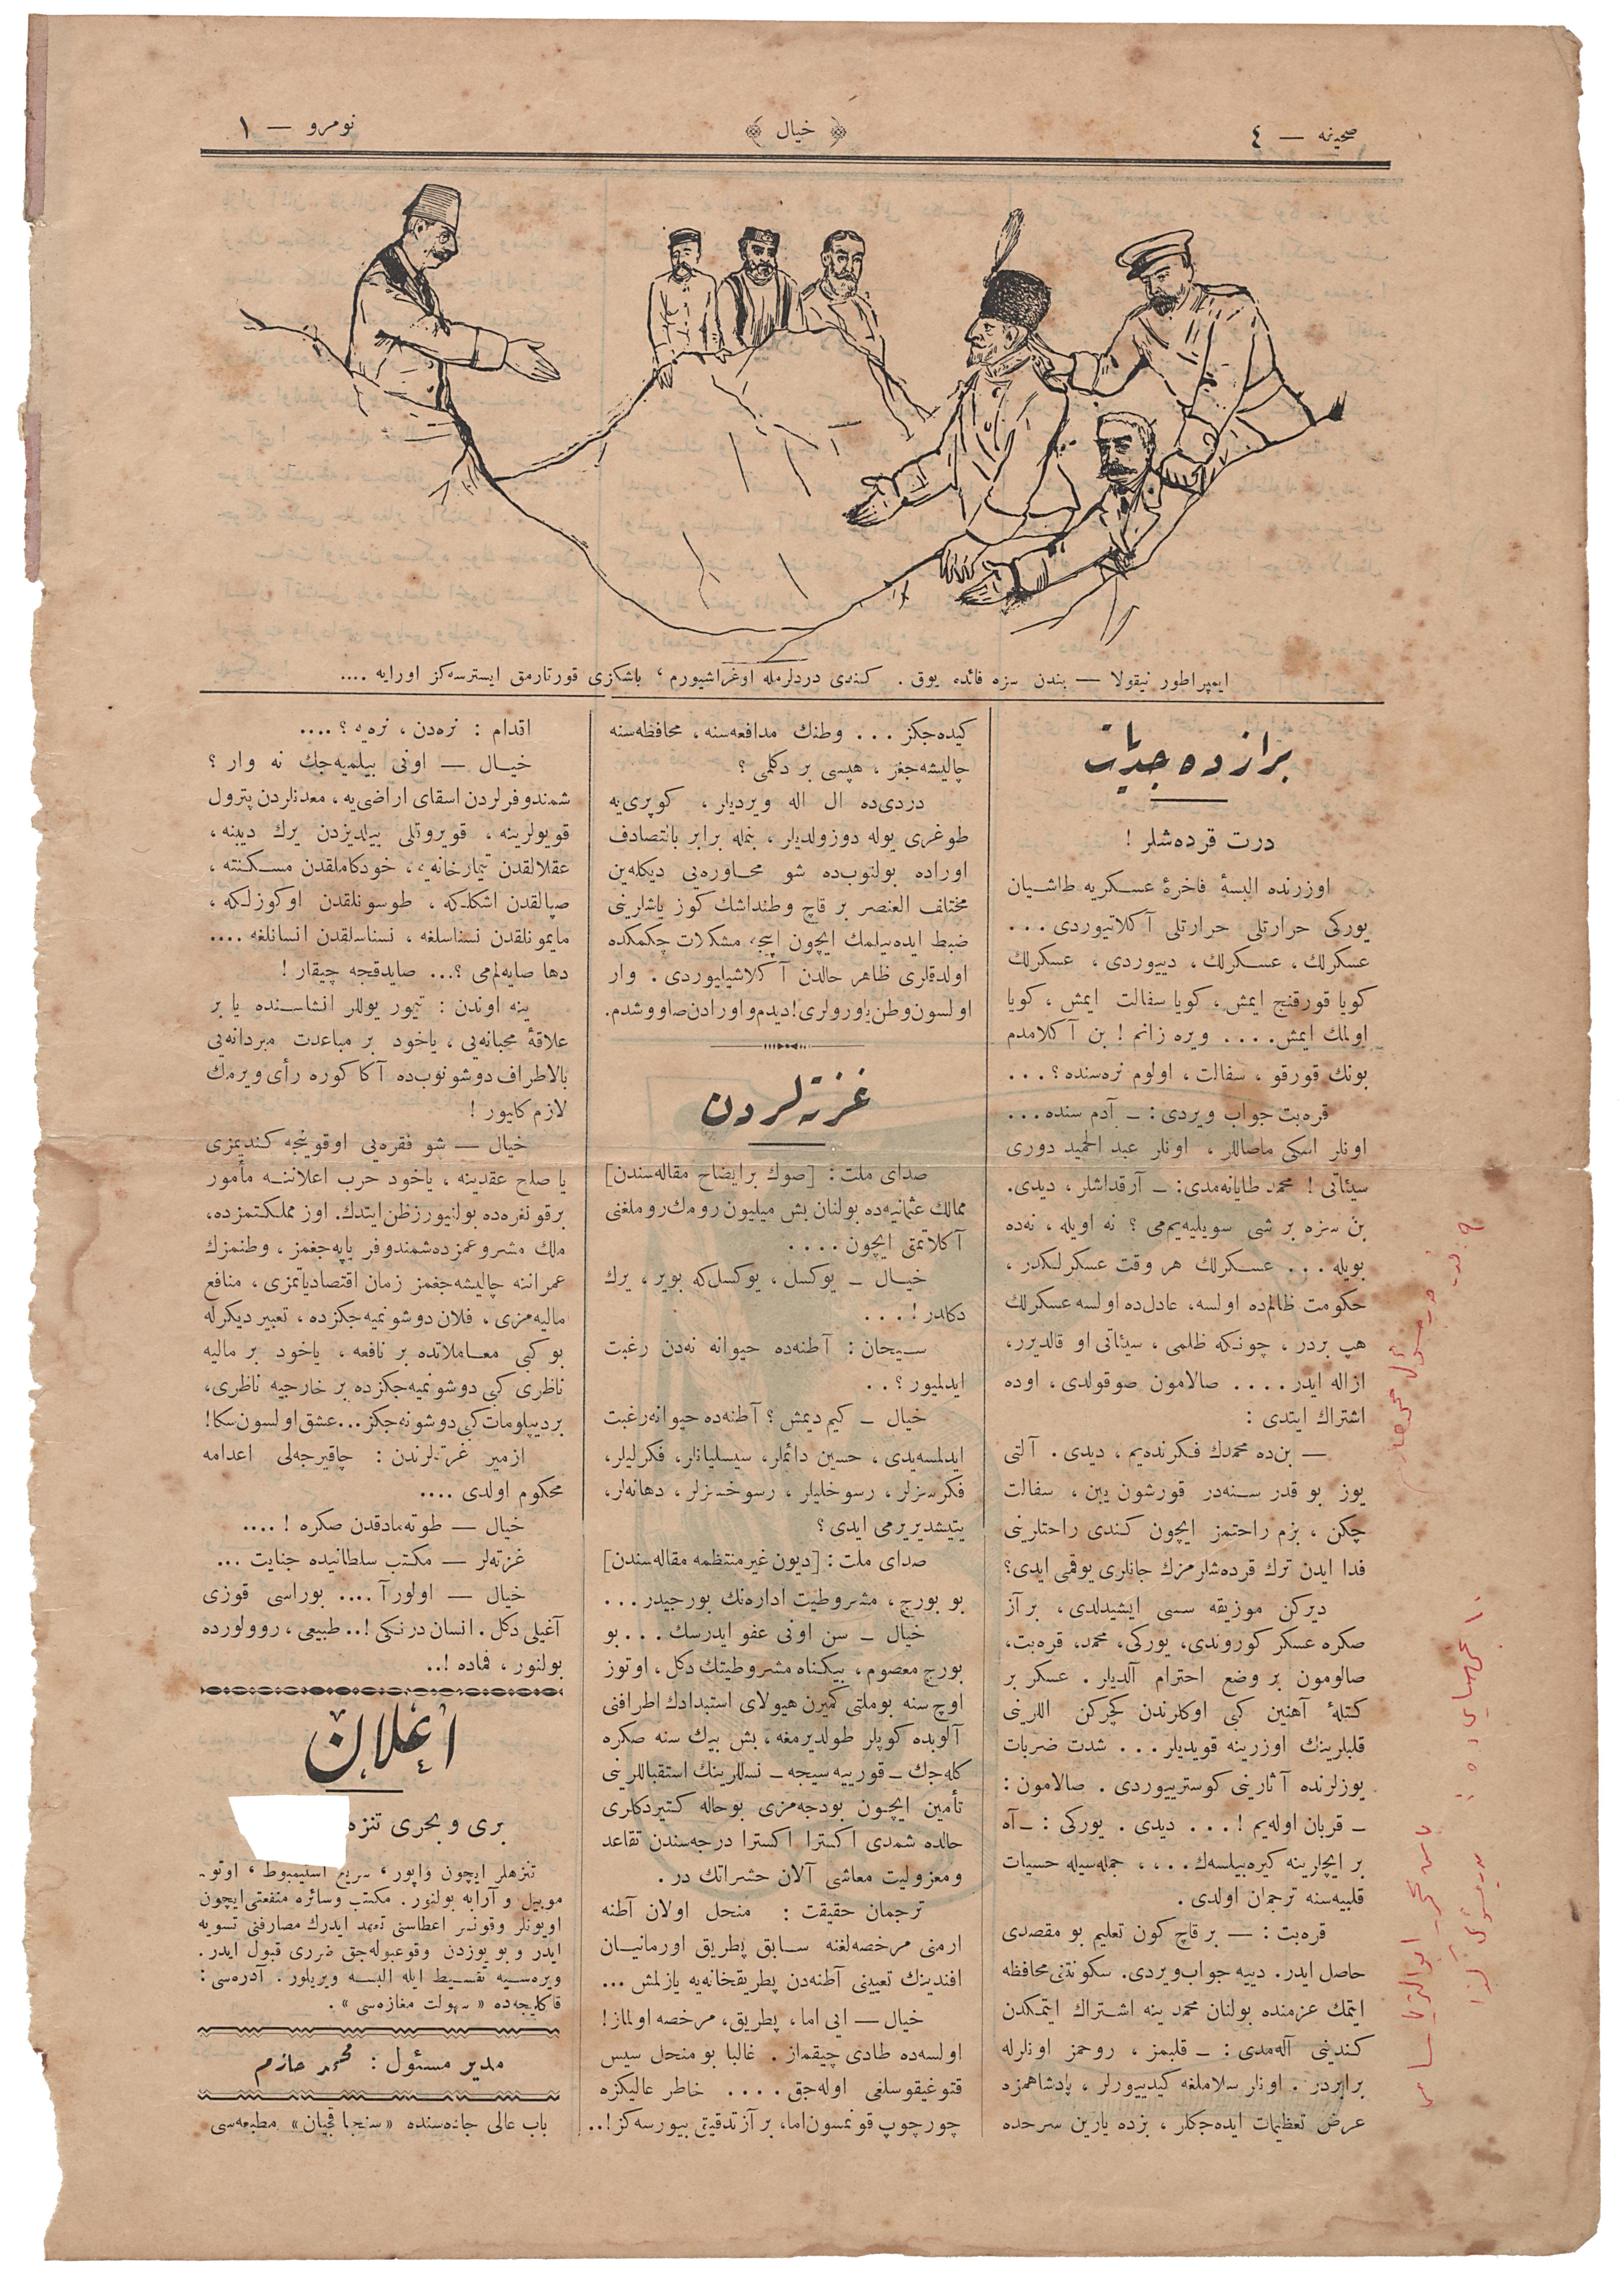 صحیفه — ٤
﴿ خیال ﴾
نومرو — ١
ایمپراطور نیقولا — بندن سزه فائده یوق . كندی دردلرمله اوغراشیورم ، باشكزی قورتارمق ایسترسه‌كز اورایه ....
برازده جدیات
درت قرده‌شلر !
اوزرنده البسهٔ فاخرهٔ عسكریه طاشیان
یوركی حرارتلی حرارتلی آ كلاتیوردی ...
عسكرلك ، عسكرلك ، دییوردی ، عسكرلك
كویا قورقنج ایمش ، كویا سفالت ایمش ، كویا
اولمك ایمش .... ویره زانم ! بن آ كلامدم
بونك قورقو ، سفالت ، اولوم نره‌سنده ؟ ...
قره‌بت جواب ویردی : ـ آدم سنده ...
اونلر اسكی ماصاللر ، اونلر عبد الحمید دوری
سیئاتی ! محمد طایانه‌مدی : ـ آرقداشلر ، دیدی.
بن سزه بر شی سویلیه‌یم‌می ؟ نه اویله ، نه‌ده
بویله ... عسكرلك هر وقت عسكرلكدر ،
حكومت ظالم‌ده اولسه، عادل‌ده اولسه عسكرلك
هپ بردر ، چونكه ظلمی ، سیئاتی او قالدیرر،
ازاله ایدر .... صالامون صوقولدی ، اوده
اشتراك ایتدی :
— بن‌ده محمدك فكرنده‌یم ، دیدی . آلتی
یوز بو قدر سنه‌در قورشون ییین ، سفالت
چكن ، بزم راحتمز ایچون كندی راحتلرینی
فدا ایدن ترك قرده‌شلرمزك جانلری یوقمی ایدی؟
دیركن موزیقه سسی ایشیدلدی ، بر آز
صكره عسكر كوروندی، یوركی، محمد، قره‌بت،
صالومون بر وضع احترام آلدیلر . عسكر بر
كتلهٔ آهنین كبی اوكلرندن كچركن اللرینی
قلبلرینك اوزرینه قویدیلر ... شدت ضربات
یوزلرنده آثارینی كوسترییوردی . صالامون :
ـ قربان اوله‌یم ! ... دیدی . یوركی : ـ آه
بر ایچلرینه كیره‌بیلسه‌ك .... جمله‌سیله حسیات
قلبیه‌سنه ترجمان اولدی .
قره‌بت : — بر قاچ كون تعلیم بو مقصدی
حاصل ایدر. دییه جواب‌ویردی. سكوتنی‌محافظه
ایتمك عزمنده بولنان محمد ینه اشتراك ایتمكدن
كندینی آله‌مدی : ـ قلبمز ، روحمز اونلرله
برابردر . اونلر سلاملغه كیدییورلر ، پادشاهمزه
عرض تعظیمات ایده‌جكلر ، بزده یارین سرحده
كیده‌جكز ... وطنك مدافعه‌سنه، محافظه‌سنه
چالیشه‌جغز ، هپسی بر دكلمی ؟
دردی‌ده ال اله ویردیلر ، كوپری‌یه
طوغری یوله دوزولدیلر ، بنمله برابر بالتصادف
اوراده بولنوب‌ده شو محاوره‌یی دیكله‌ین
مختلف العنصر بر قاچ وطنداشك كوز یاشلرینی
ضبط ایده‌بیلمك ایچون اپیجه مشكلات چكمكده
اولدقلری ظاهر حالدن آ كلاشیلیوردی . وار
اولسون وطن یاورولری! دیدم و اورادن صاووشدم.
غزته لردن
صدای ملت : [صوك برایضاح مقاله‌سندن]
ممالك عثمانیه‌ده بولنان بش میلیون رومك روملغنی
آ كلاتمق ایچون ....
خیال ـ یوكسل ، یوكسل‌كه بویر ، یرك
دكلدر ! ...
سیحان : آطنه‌ده حیوانه نه‌دن رغبت
ایدلمیور ؟ ..
خیال ـ كیم دیمش ؟ آطنه‌ده حیوانه‌رغبت
ایدلمسه‌یدی ، حسین دائملر، سیسلیانلر، فكرلیلر،
فكرسزلر ، رسوخلیلر ، رسوخسزلر ، دهانه‌لر،
یتیشدیریرمی ایدی ؟
صدای ملت : [دیون غیرمنتظمه مقاله‌سندن]
بو بورج ، مشروطیت اداره‌نك بورجیدر ...
خیال ـ سن اونی عفو ایدرسك ... بو
بورج معصوم ، بیكناه مشروطیتك دكل ، اوتوز
اوچ سنه بوملتی كمیرن هیولای استبدادك اطرافنی
آلوبده كوپلر طولدیرمغه ، بش بیك سنه صكره
كله‌جك ـ قورییه سیجه ـ نسللرینك استقباللرینی
تأمین ایچون بودجه‌مزی بوحاله كتیردكلری
حالده شمدی اكسترا اكسترا درجه‌سندن تقاعد
ومعزولیت معاشی آلان حشراتك در .
ترجمان حقیقت : منحل اولان آطنه
ارمنی مرخصه‌لغنه سابق پطریق اورمانیان
افندینك تعیینی آطنه‌دن پطریقخانه‌یه یازلمش ...
خیال — ایی اما ، پطریق ، مرخصه اولماز!
اولسه‌ده طادی چیقماز . غالبا بو منحل سیس
قتوغیقوسلغی اوله‌جق .... خاطر عالیكزه
چورچوپ قونمسون‌اما، بر آز تدقیق بیورسه‌كز !..
اقدام : نره‌دن ، نره‌یه ؟ ....
خیال — اونی بیلمیه‌جك نه وار ؟
شمندوفرلردن اسقای اراضی‌یه ، معدنلردن پترول
قویولرینه ، قویروقلی ییلدیزدن یرك دیبنه ،
عقلالقدن تیمارخانه‌یه ، خودكاملقدن مسكنته ،
صپالقدن اشكلكه ، طوسونلقدن اوكوزلكه ،
مایمونلقدن نسناسلغه ، نسناسلقدن انسانلغه ....
دها صایه‌لم‌می ؟ ... صایدقجه چیقار !
ینه اوندن : تیمور یوللر انشاسنده یا بر
علاقهٔ محبانه‌یی ، یاخود بر مباعدت مبردانه‌یی
بالاطراف دوشونوب‌ده آكا كوره رأی ویرمك
لازم كلیور !
خیال — شو فقره‌یی اوقوینجه كندیمزی
یا صلح عقدینه ، یاخود حرب اعلاننه مأمور
برقونغره‌ده بولنیورز ظن ایتدك. اوز مملكتمزده ،
ملك مشروعمزده شمندوفر یاپه‌جغمز ، وطنمزك
عمراننه چالیشه‌جغمز زمان اقتصادیاتمزی، منافع
مالیه‌مزی ، فلان دوشونمیه‌جكزده ، تعبیر دیكرله
بو كبی معاملاتده بر نافعه ، یاخود بر مالیه
ناظری كبی دوشونمیه‌جكزده بر خارجیه ناظری،
بر دیپلومات كبی دوشونه‌جكز ... عشق اولسون سكا!
ازمیر غزته‌لرندن : چاقیرجه‌لی اعدامه
محكوم اولدی ....
خیال — طوته‌مادقدن صكره ! ....
غزته‌لر — مكتب سلطانیده جنایت ...
خیال — اولورآ .... بوراسی قوزی
آغیلی دكل . انسان درنكی !.. طبیعی ، روولورده
بولنور ، قماده !..
اعلان
بری و بحری تنزه
تنزهلر ایچون واپور ، سریع استیمبوط ، اوتو‌ـ
موبیل و آرابه بولنور . مكتب وسائره منفعتی‌ایچون
اویونلر وقونسر اعطاسنی تعهد ایدرك مصارفنی تسویه
ایدر و بو یوزدن وقوعبوله‌جق ضرری قبول ایدر .
ویره‌سیه تقسیط ایله البسه ویریلور . آدره‌سی :
« سهولت مغازه‌سی » .
مدیر مسئول : محمد حازم
باب عالی جاده‌سنده «سنجاقجیان» مطبعه‌سی